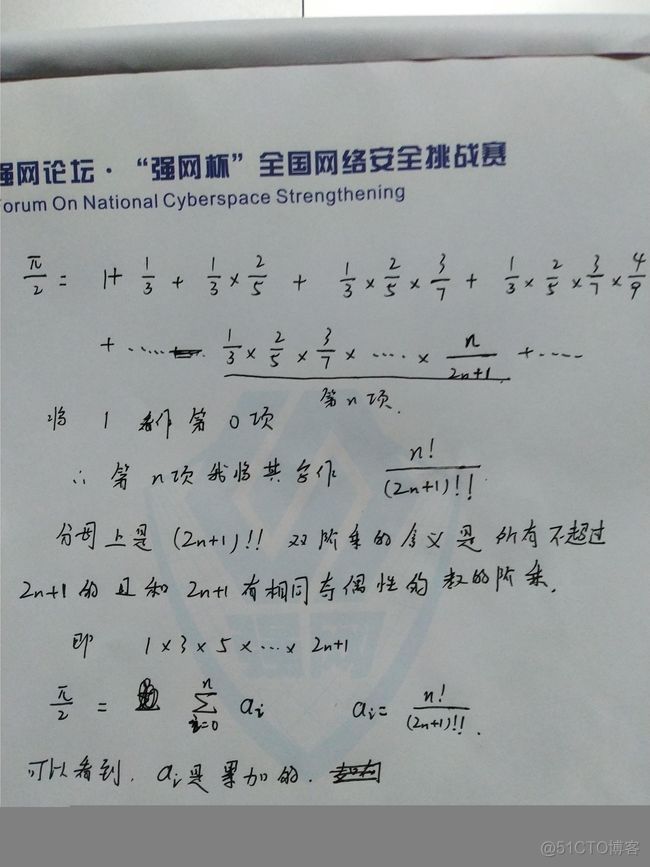 强网论坛·“强网杯”全国网络安全挑战赛
Forum On National Cyberspace Strengthening
π/2 = 1+ 1/3 + 1/3 × 2/5 + 1/3 × 2/5 × 3/7 + 1/3 × 2/5 × 3/7 × 4/9
+ ...... 1/3 × 2/5 × 3/7 × .... × n/2n+1 + ....
第n项.
将 1 看作第0项
∴ 第n项我将其写作 n!/(2n+1)!!
分母上是(2n+1)!! 双阶乘的含义是所有不超过
2n+1的且和2n+1有相同奇偶性的数的阶乘.
即 1×3×5×...×2n+1
π/2 = n∑i=0 ai ai= n!/(2n+1)!!.
可以看到. ai是累加的.
强网
@51CTO博客